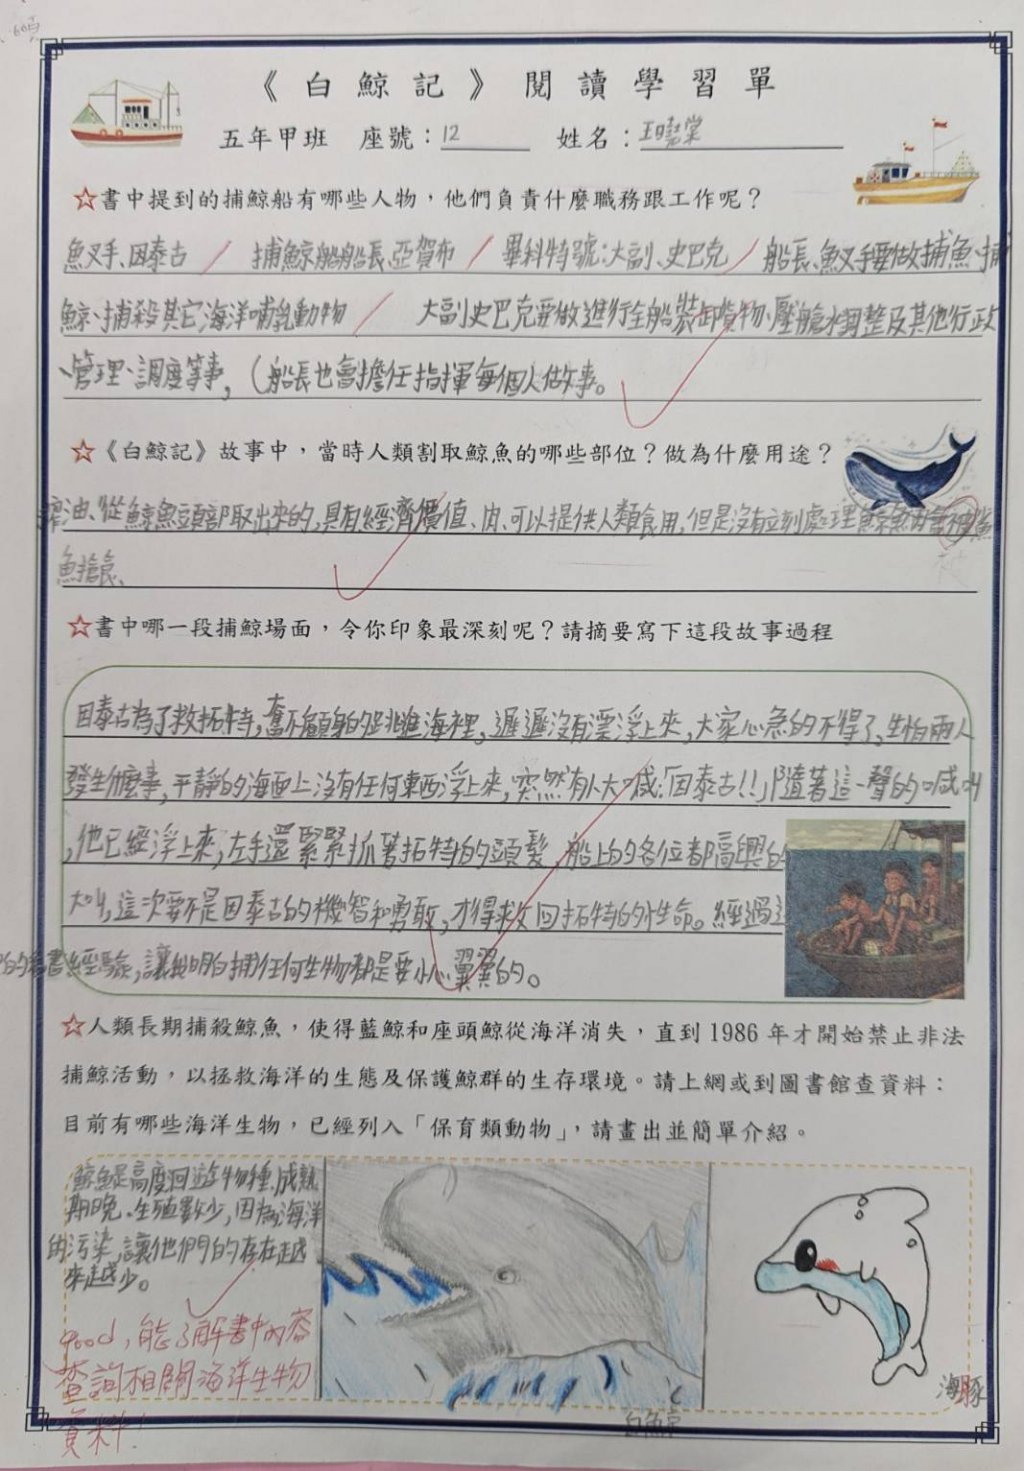 《白鯨記》閱讀學習單
五年甲班 座號：12 姓名：
☆書中提到的捕鯨船有哪些人物，他們負責什麼職務跟工作呢？
魚叉手、因泰古 / 捕鯨船船長、亞賀布 / 畢科特號:大副、史巴克 / 船長、魚叉手要做捕魚、捕
鯨、捕殺其它海洋哺乳動物 / 大副史巴克要做進行全船裝卸貨物、壓艙水調整及其他行政
、管理、調度等事,(船長也會擔任指揮每個人做事。
☆《白鯨記》故事中，當時人類割取鯨魚的哪些部位？做為什麼用途？
油、從鯨魚頭部取出來的,具有經濟價值、肉、可以提供人類食用,但是沒有立刻處理鯨魚肉會被鯊
魚搶食、
☆書中哪一段捕鯨場面，令你印象最深刻呢？請摘要寫下這段故事過程
因泰古為了救拓特,奮不顧身的跳進海裡,遲遲沒有漂浮上來,大家心急的不得了,生怕兩人
發生麼事,平靜的海面上沒有任何東西浮上來,突然有人大喊:「因泰古!!」隨著這一聲的喊叫
,他已經浮上來,左手還緊緊抓著拓特的頭髮,船上的各位都高興的
大叫,這次要不是因泰古的機智和勇敢,才得救回拓特的性命。經過這
的看書經驗,讓我明白捕任何生物都是要小心翼翼的。
☆人類長期捕殺鯨魚，使得藍鯨和座頭鯨從海洋消失，直到1986年才開始禁止非法
捕鯨活動，以拯救海洋的生態及保護鯨群的生存環境。請上網或到圖書館查資料：
目前有哪些海洋生物，已經列入「保育類動物」，請畫出並簡單介紹。
鯨魚是高度迴遊物種,成熟
期晚.生殖數少,因為海洋
的污染,讓他們的存在越
來越少。
good,能了解書中內容
查詢相關海洋生物
資料!
白鯨
海豚